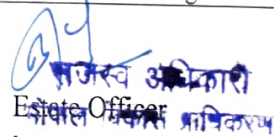 राजस्व अधिकारी
Estate Officer
भोपाल विकास प्राधिकरण